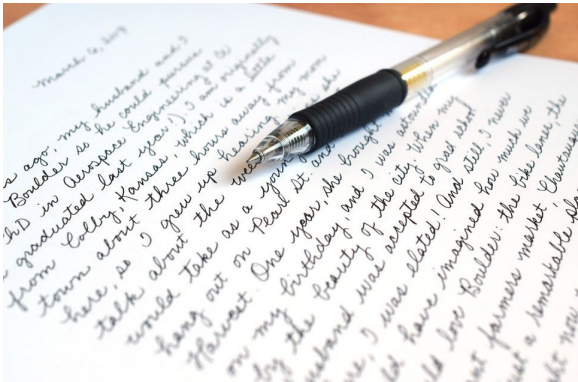 March 6, 2017
s ago, my husband and I
Boulder so he could pursue
hD in Aerospace Engineering at CU
graduated last year!). I am originally
from Colby, Kansas, which is a little
town about three hours away from
here, so I grew up hearing my mom
talk about the
would take as a young
hang out on Pearl St. and
Harvest. One year, she brought
on my birthday, and I was
by the beauty of the city. When my
husband was accepted to grad school
I was elated! And still I never
ld have imagined how much we
ld love Boulder: the bike lanes, the
farmers market, Chautauqua
st a remarkable
ght now